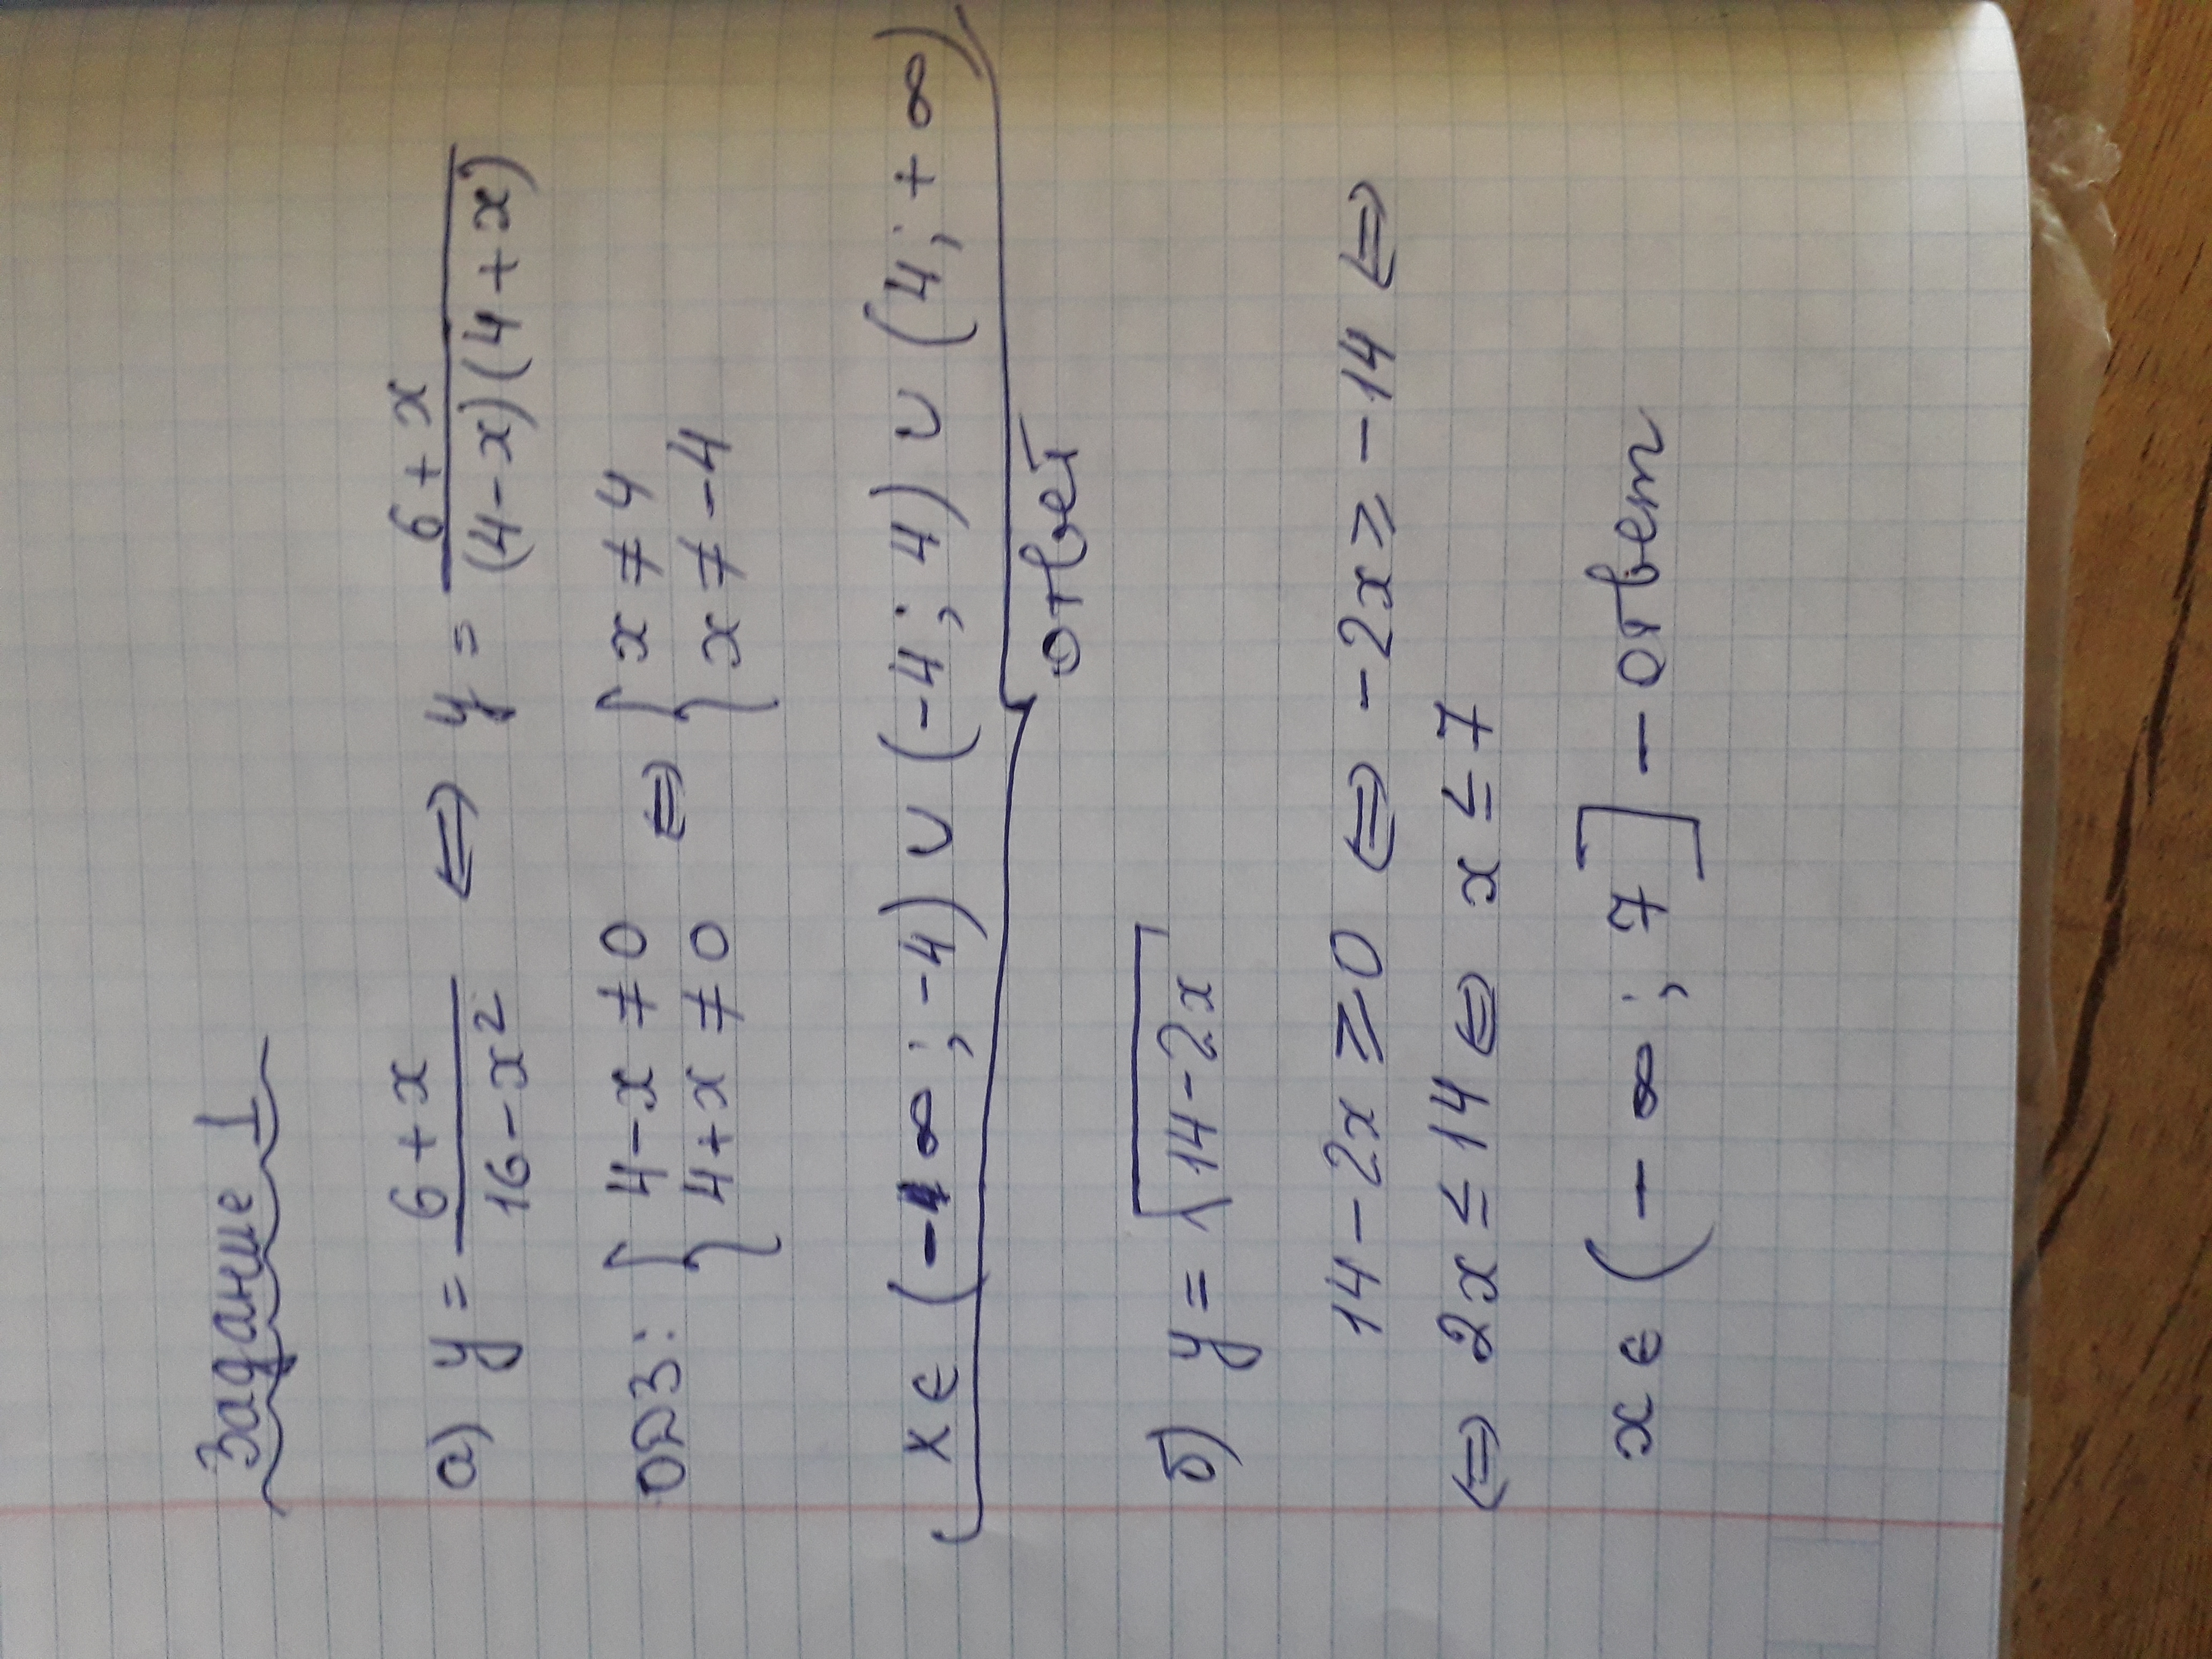 Задание 1
а) y = (6+x)/(16-x²) ⇔ y = (6+x)/((4-x)(4+x))
ОДЗ: { 4-x ≠ 0 ⇔ { x ≠ 4
4+x ≠ 0 x ≠ -4
x ∈ (-∞; -4) ∪ (-4; 4) ∪ (4; +∞)
ответ
б) y = √(14-2x)
14-2x ≥ 0 ⇔ -2x ≥ -14 ⇔
⇔ 2x ≤ 14 ⇔ x ≤ 7
x ∈ (-∞; 7] - ответ